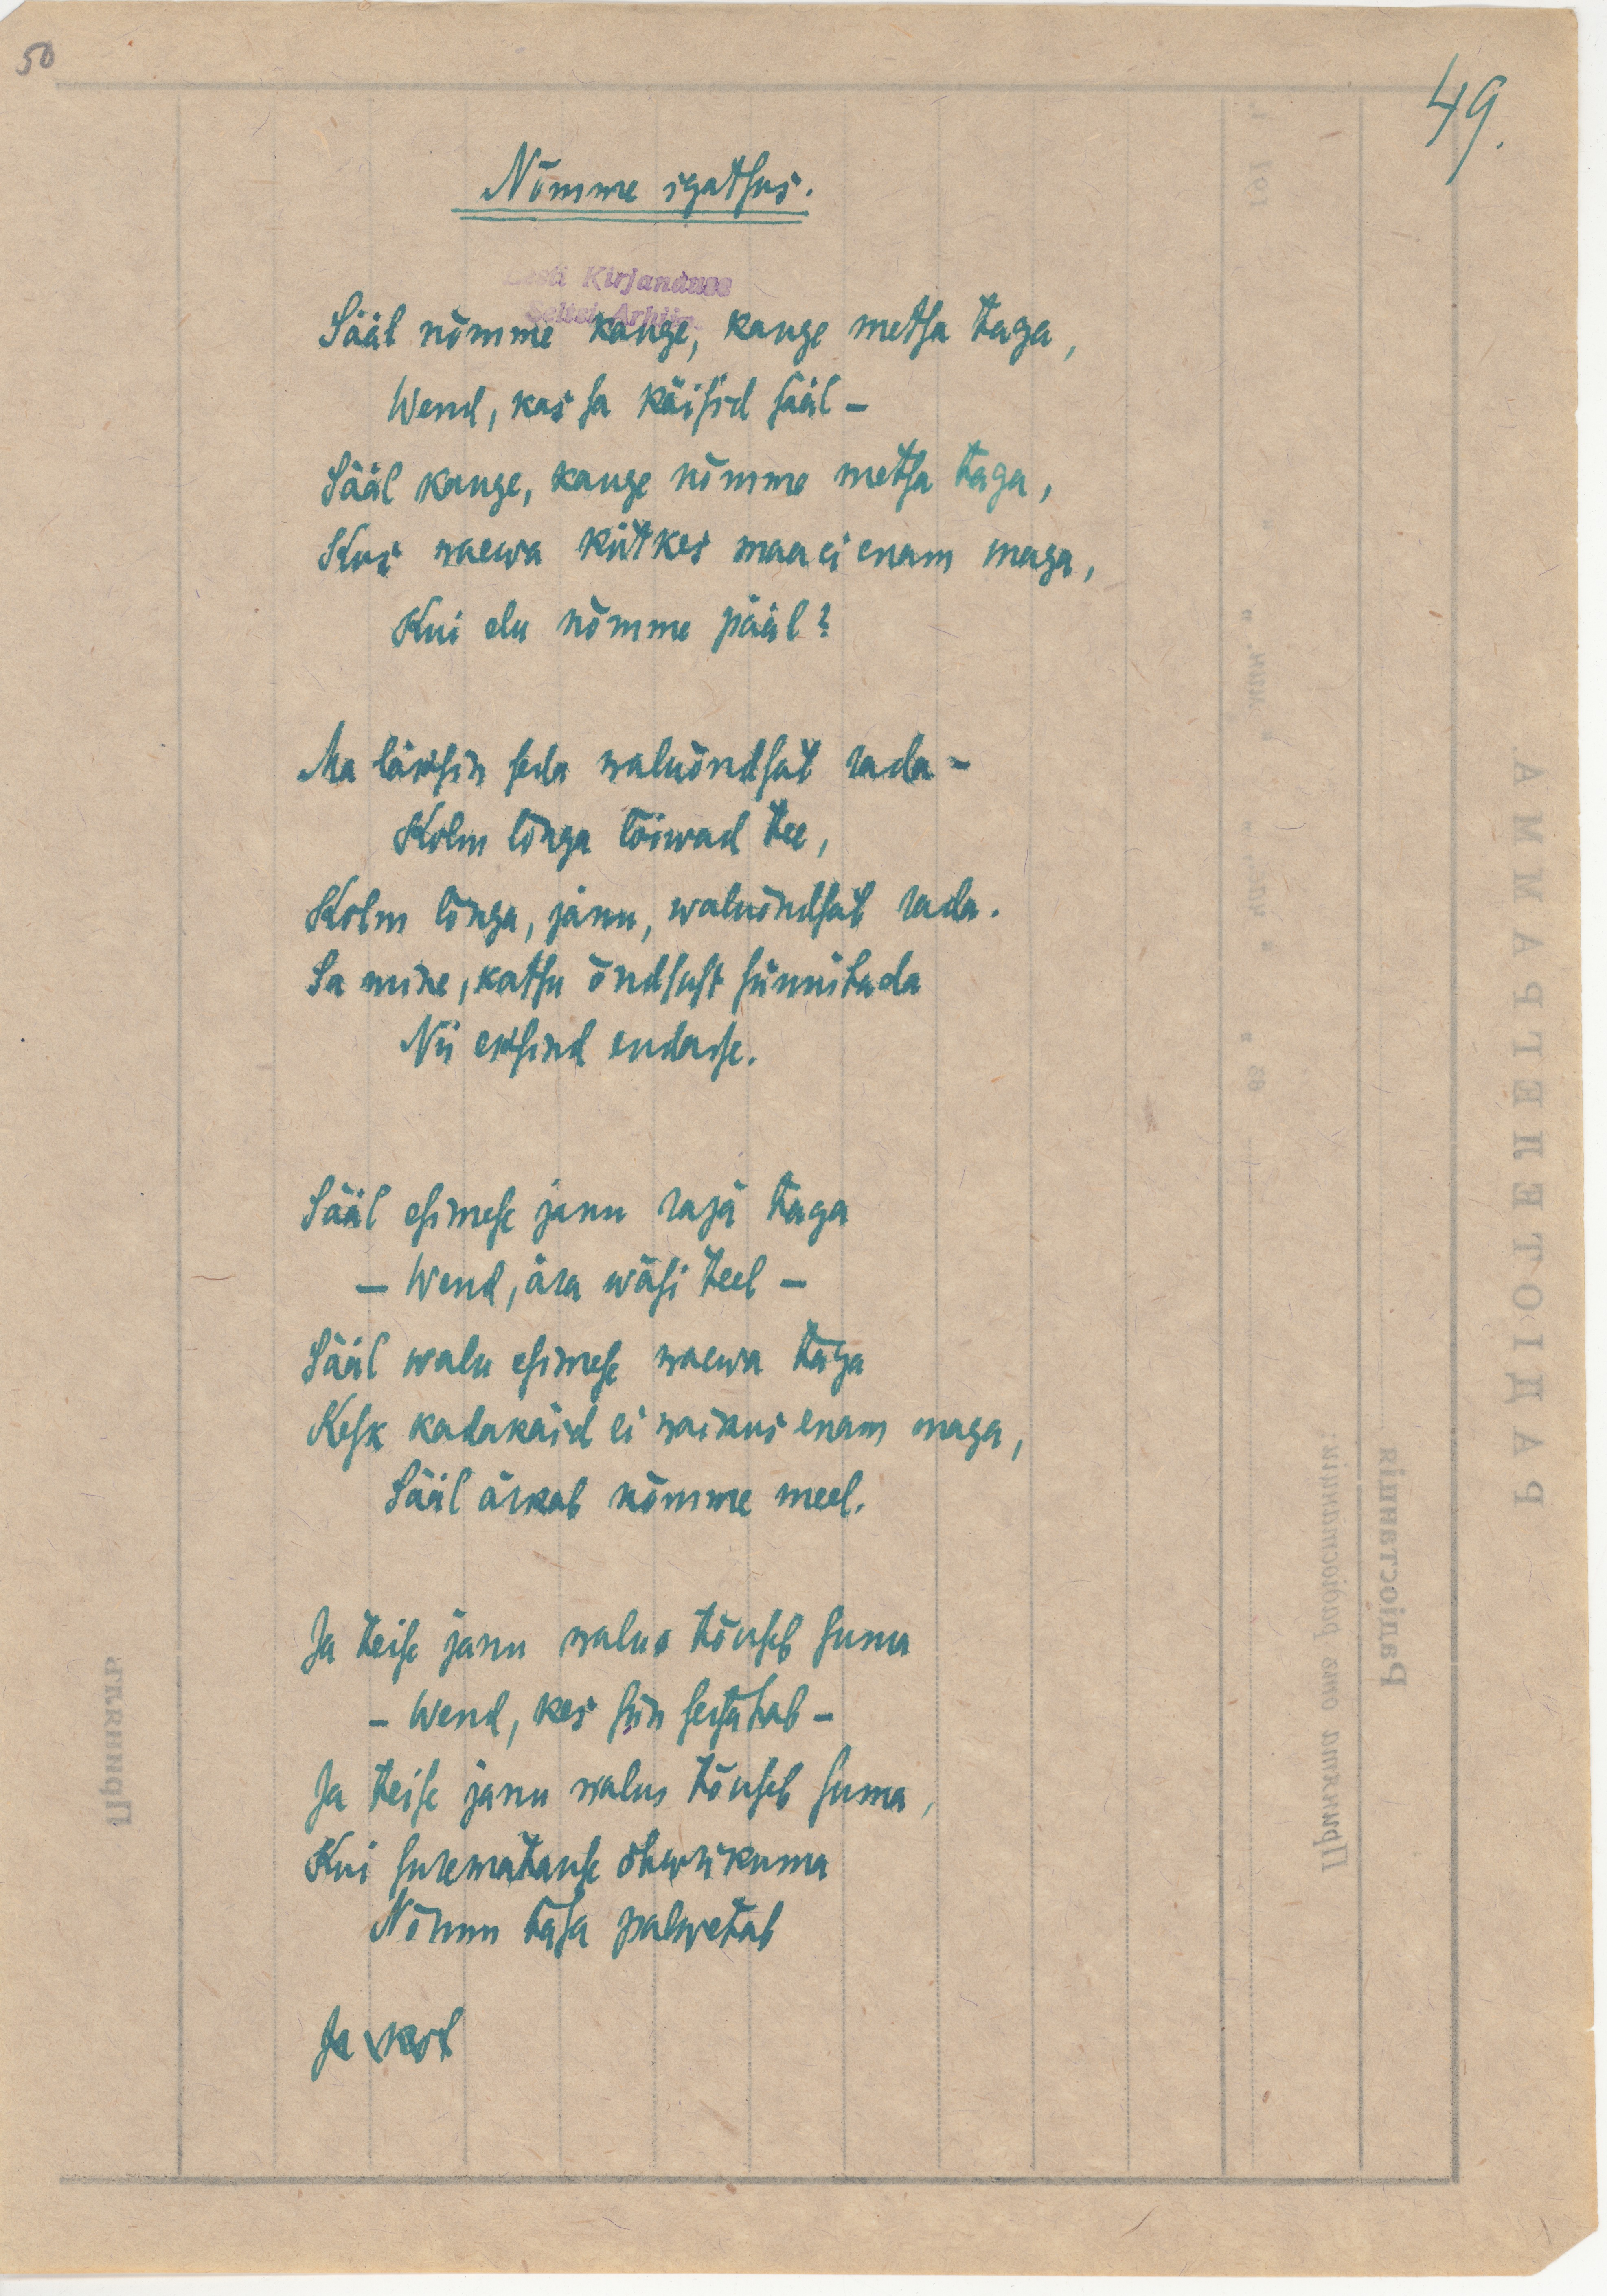 50
49.
Nõmme igatsus.
Eesti Kirjanduse
Seltsi Arhiiv.
Sääl nõmme kauge, kauge metsa taga,
Wend, kas sa käisid sääl –
Sääl kauge, kauge nõmme metsa taga,
Kus waewa kütkes maa ei enam maga,
Kui elu nõmme pääl?
Ma läksin seda waluõndsat rada –
Kolm lõnga lõiwad tee,
Kolm lõnga, janu, waluõndsat rada.
Sa mine, katsu õndsust sünnitada
Nii eksind endasse.
Sääl esimese janu raja taga
– Wend, ära wäsi teel –
Sääl walu esimese waewa taga
Kesk kadakaid ei waikus enam maga,
Sääl ärkab nõmme meel.
Ja teise janu walus tõuseb suma
– Wend, kes siin seisatab –
Ja teise janu walus tõuseb suma,
Kui surematuse ohwrikuma
Nõmm tasa palwetab
Ja
РАДІОТЕЛЕГРАММА
Радіостанція
Принята отъ радіостанціи:
Принялъ